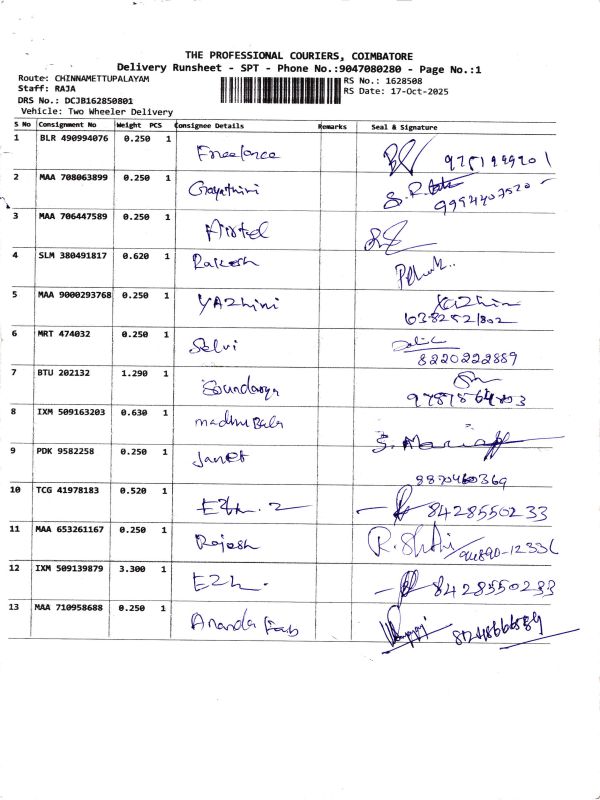 THE PROFESSIONAL COURIERS, COIMBATORE
Delivery Runsheet - SPT - Phone No.:9047080280 - Page No.:1
Route: CHINNAMETTUPALAYAM RS No.: 1628508
Staff: RAJA RS Date: 17-Oct-2025
DRS No.: DCJB162850801
Vehicle: Two Wheeler Delivery
S No Consignment No Weight PCS Consignee Details Remarks Seal & Signature
1 BLR 490994076 0.250 1 Freelance
2 MAA 708063899 0.250 1 Gayathiri
3 MAA 706447589 0.250 1 Airtel
4 SLM 380491817 0.620 1 Rakesh
5 MAA 9000293768 0.250 1 YAZhini Yazhini
6382521802
6 MRT 474032 0.250 1 Selvi
8220222889
7 BTU 202132 1.290 1 Soundarya
8 IXM 509163203 0.630 1 madhu Bala
9 PDK 9582258 0.250 1 Janet
8870460369
10 TCG 41978183 0.520 1 8428550233
11 MAA 653261167 0.250 1 Rajesh
12 IXM 509139879 3.300 1 8428550233
13 MAA 710958688 0.250 1 Ananda